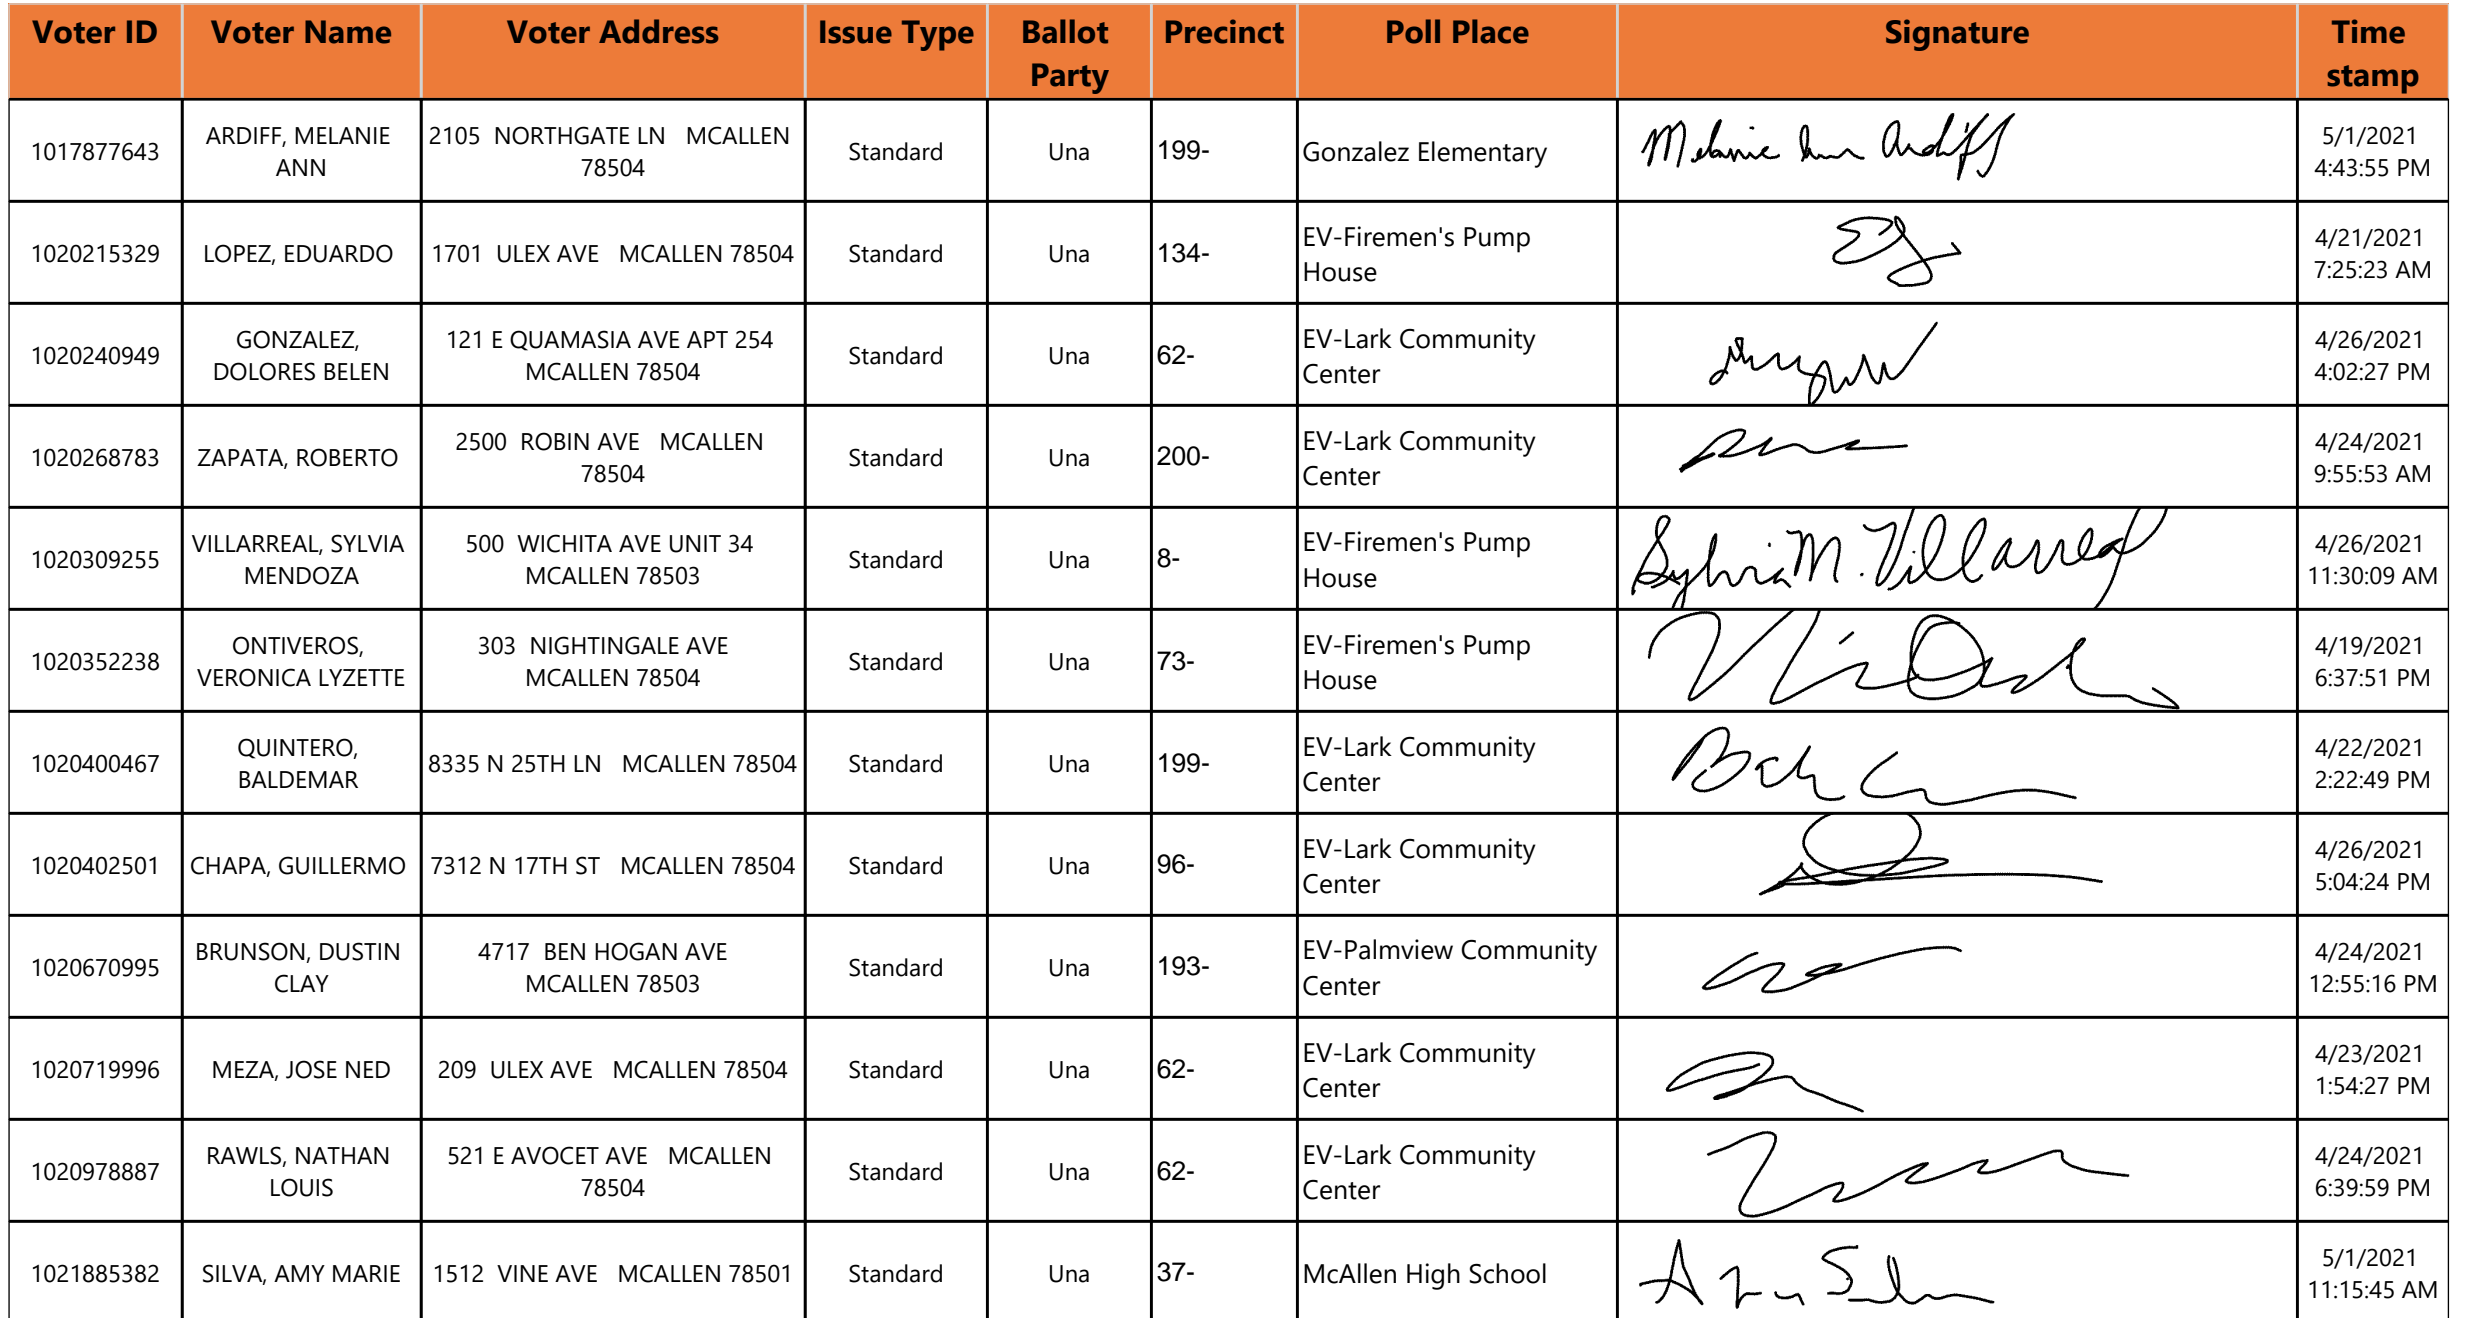 Voter ID Voter Name Voter Address Issue Type Ballot Party Precinct Poll Place Signature Time stamp
1017877643 ARDIFF, MELANIE ANN 2105 NORTHGATE LN MCALLEN 78504 Standard Una 199- Gonzalez Elementary Melanie Ann Ardiff 5/1/2021 4:43:55 PM
1020215329 LOPEZ, EDUARDO 1701 ULEX AVE MCALLEN 78504 Standard Una 134- EV-Firemen's Pump House 4/21/2021 7:25:23 AM
1020240949 GONZALEZ, DOLORES BELEN 121 E QUAMASIA AVE APT 254 MCALLEN 78504 Standard Una 62- EV-Lark Community Center 4/26/2021 4:02:27 PM
1020268783 ZAPATA, ROBERTO 2500 ROBIN AVE MCALLEN 78504 Standard Una 200- EV-Lark Community Center 4/24/2021 9:55:53 AM
1020309255 VILLARREAL, SYLVIA MENDOZA 500 WICHITA AVE UNIT 34 MCALLEN 78503 Standard Una 8- EV-Firemen's Pump House Sylvia M. Villarreal 4/26/2021 11:30:09 AM
1020352238 ONTIVEROS, VERONICA LYZETTE 303 NIGHTINGALE AVE MCALLEN 78504 Standard Una 73- EV-Firemen's Pump House 4/19/2021 6:37:51 PM
1020400467 QUINTERO, BALDEMAR 8335 N 25TH LN MCALLEN 78504 Standard Una 199- EV-Lark Community Center 4/22/2021 2:22:49 PM
1020402501 CHAPA, GUILLERMO 7312 N 17TH ST MCALLEN 78504 Standard Una 96- EV-Lark Community Center 4/26/2021 5:04:24 PM
1020670995 BRUNSON, DUSTIN CLAY 4717 BEN HOGAN AVE MCALLEN 78503 Standard Una 193- EV-Palmview Community Center 4/24/2021 12:55:16 PM
1020719996 MEZA, JOSE NED 209 ULEX AVE MCALLEN 78504 Standard Una 62- EV-Lark Community Center 4/23/2021 1:54:27 PM
1020978887 RAWLS, NATHAN LOUIS 521 E AVOCET AVE MCALLEN 78504 Standard Una 62- EV-Lark Community Center 4/24/2021 6:39:59 PM
1021885382 SILVA, AMY MARIE 1512 VINE AVE MCALLEN 78501 Standard Una 37- McAllen High School 5/1/2021 11:15:45 AM